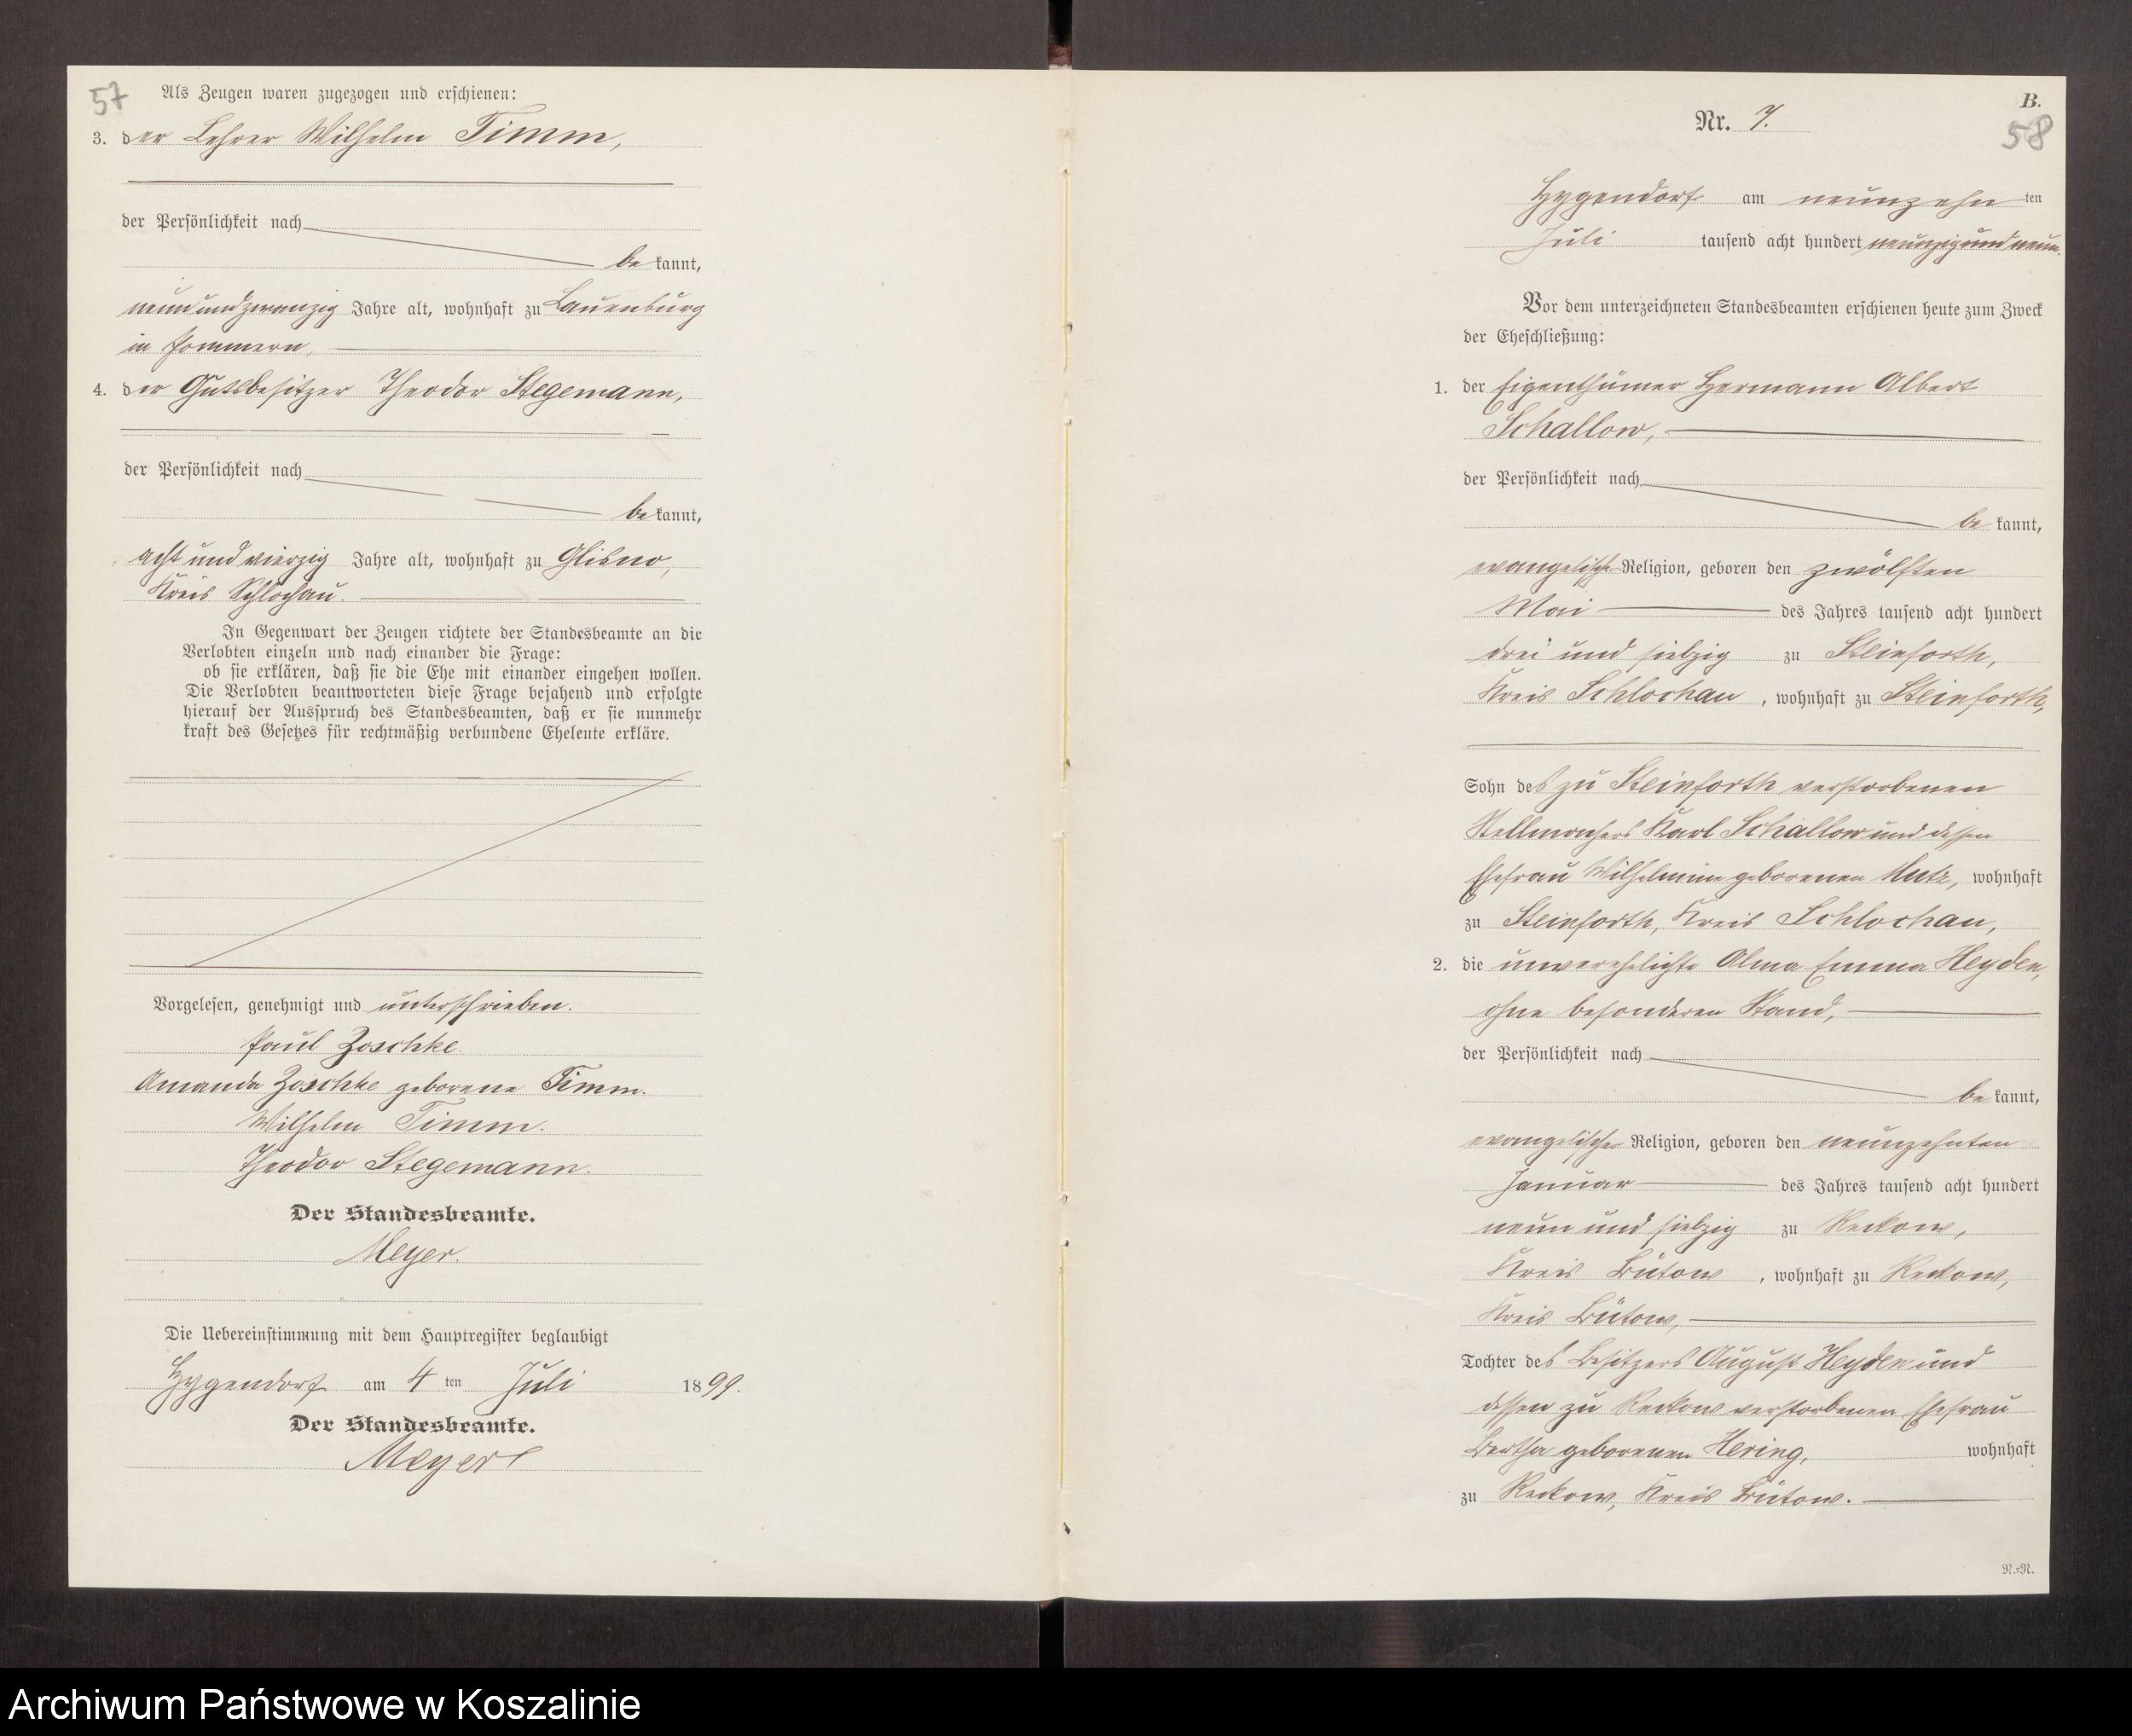 57
Als Zeugen waren zugezogen und erschienen:
3. der Lehrer Wilhelm Timm,
der Persönlichkeit nach
be kannt,
neunundzwanzig Jahre alt, wohnhaft zu Lauenburg
in Pommern,
4. der Gutsbesitzer Theodor Stegemann,
der Persönlichkeit nach
be kannt,
acht und vierzig Jahre alt, wohnhaft zu Glisno,
Kreis Schlochau.
In Gegenwart der Zeugen richtete der Standesbeamte an die
Verlobten einzeln und nach einander die Frage:
ob sie erklären, daß sie die Ehe mit einander eingehen wollen.
Die Verlobten beantworteten diese Frage bejahend und erfolgte
hierauf der Ausspruch des Standesbeamten, daß er sie nunmehr
kraft des Gesetzes für rechtmäßig verbundene Eheleute erkläre.
Vorgelesen, genehmigt und unterschrieben.
Paul Zoschke
Amanda Zoschke geborene Timm.
Wilhelm Timm.
Theodor Stegemann.
Der Standesbeamte.
Meyer.
Die Uebereinstimmung mit dem Hauptregister beglaubigt
Hygendorf am 4 ten Juli 1899.
Der Standesbeamte.
Meyer
B.
Nr. 7.
58
Hygendorf am neunzehn ten
Juli tausend acht hundert neunzig und neun.
Vor dem unterzeichneten Standesbeamten erschienen heute zum Zweck
der Eheschließung:
1. der Eigenthümer Hermann Albert
Schallow,
der Persönlichkeit nach
be kannt,
evangelischer Religion, geboren den zwölften
Mai des Jahres tausend acht hundert
drei und siebzig zu Steinforth,
Kreis Schlochau, wohnhaft zu Steinforth,
Sohn des zu Steinforth verstorbenen
Stellmachers Karl Schallow und dessen
Ehefrau Wilhelmine geborenen Mutz, wohnhaft
zu Steinforth, Kreis Schlochau,
2. die unverehelichte Alma Emma Heyden,
ohne besonderen Stand,
der Persönlichkeit nach
be kannt,
evangelischer Religion, geboren den neunzehnten
Januar des Jahres tausend acht hundert
neun und siebzig zu Reckow,
Kreis Bütow, wohnhaft zu Reckow,
Kreis Bütow,
Tochter des Besitzers August Heyden und
dessen zu Reckow verstorbenen Ehefrau
Bertha geborenen Hering, wohnhaft
zu Reckow, Kreis Bütow.
N.=N.
Archiwum Państwowe w Koszalinie